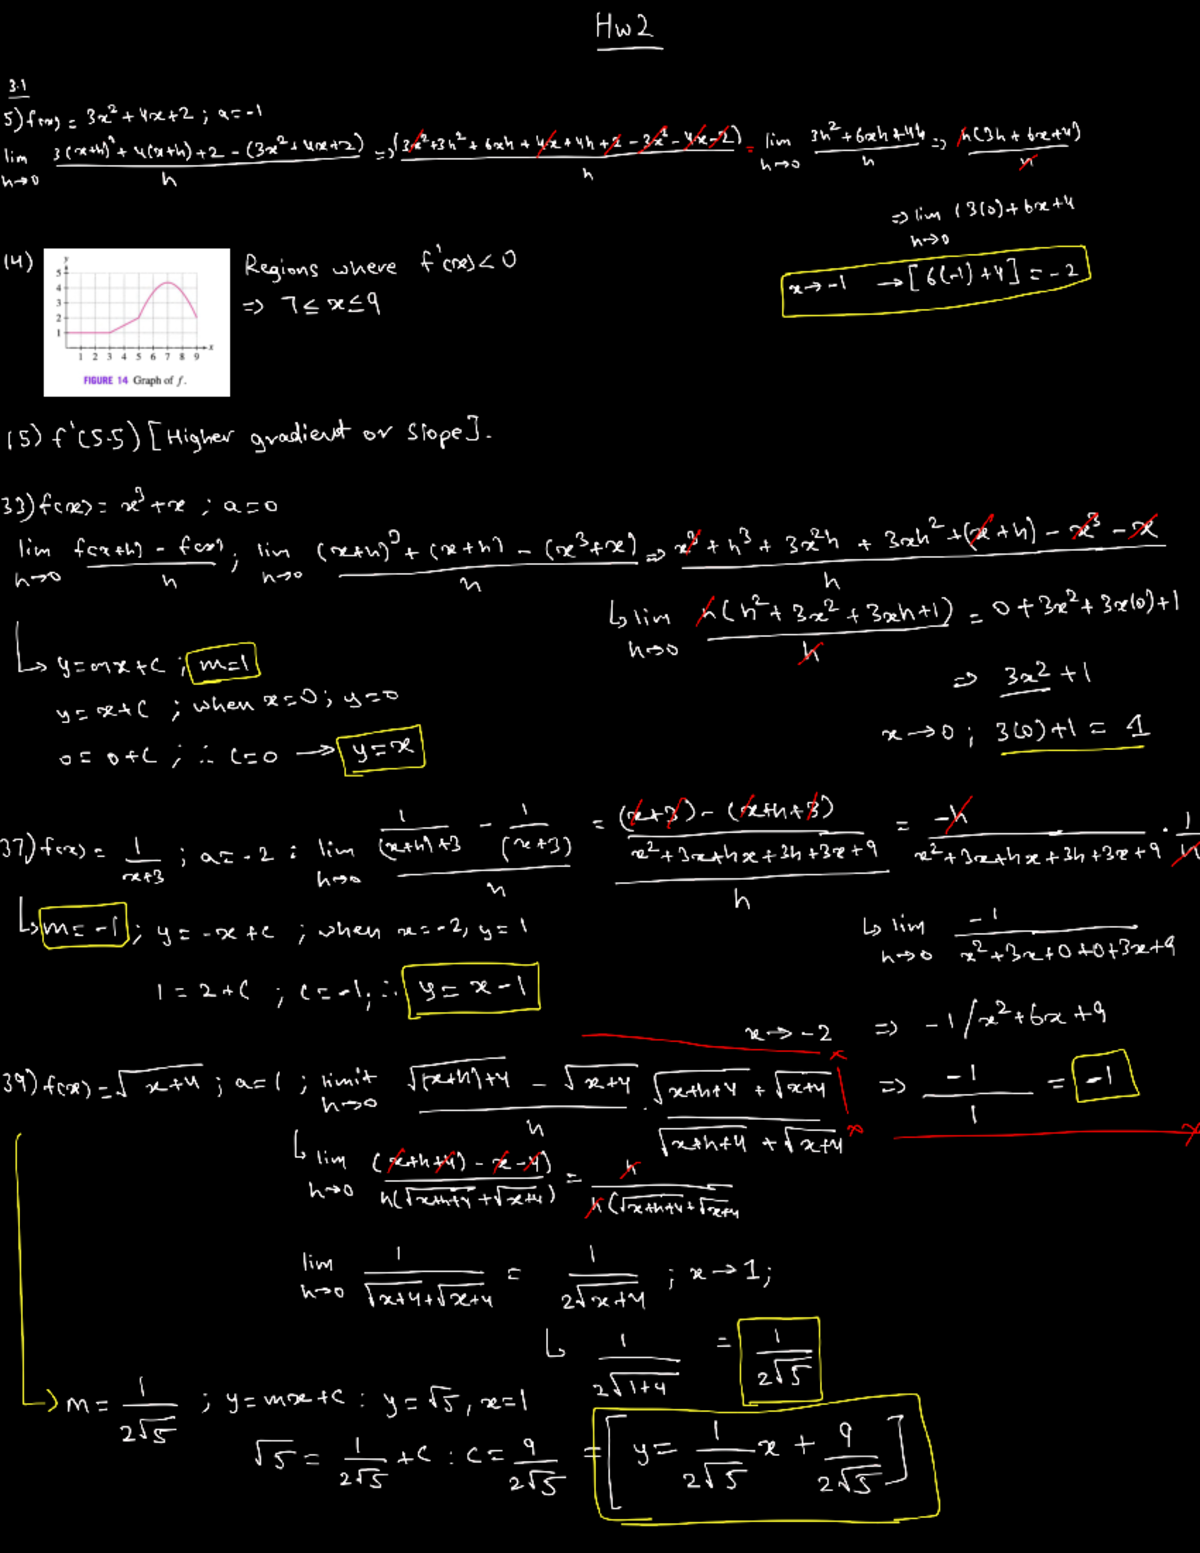 Hw2
3.1
5) f(x) = 3x² + 4x + 2 ; a = -1
lim h→0 (3(x+h)² + 4(x+h) + 2 - (3x² + 4x + 2)) / h => (3x² + 3h² + 6xh + 4x + 4h + 2 - 3x² - 4x - 2) / h = lim h→0 (3h² + 6xh + 4h) / h => h(3h + 6x + 4) / h
=> lim h→0 (3(0) + 6x + 4
x → -1 → [6(-1) + 4] = -2
14)
Regions where f'(x) < 0
=> 7 ≤ x ≤ 9
y
5
4
3
2
1
1 2 3 4 5 6 7 8 9 x
FIGURE 14 Graph of f.
15) f'(5.5) [Higher gradient or slope].
33) f(x) = x³ + x ; a = 0
lim h→0 (f(x+h) - f(x)) / h ; lim h→0 ((x+h)³ + (x+h) - (x³ + x)) / h => (x³ + h³ + 3x²h + 3xh² + (x + h) - x³ - x) / h
↳ lim h→0 h(h² + 3x² + 3xh + 1) / h = 0 + 3x² + 3x(0) + 1
=> 3x² + 1
x → 0 ; 3(0) + 1 = 1
↳ y = mx + c ; m = 1
y = x + c ; when x = 0 ; y = 0
0 = 0 + c ; ∴ c = 0 → y = x
37) f(x) = 1/(x+3) ; a = -2 : lim h→0 (1/((x+h)+3) - 1/(x+3)) / h = (((x+3) - (x+h+3)) / (x² + 3x + hx + 3h + 3x + 9)) / h = -h / (x² + 3x + hx + 3h + 3x + 9) · 1/h
↳ lim h→0 -1 / (x² + 3x + 0 + 0 + 3x + 9
↳ m = -1 ; y = -x + c ; when x = -2, y = 1
1 = 2 + c ; c = -1 ; ∴ y = x - 1
x → -2 => -1/x² + 6x + 9
=> -1/1 = -1
39) f(x) = √(x+4) ; a = 1 ; limit h→0 (√((x+h)+4) - √(x+4)) / h · (√(x+h+4) + √(x+4)) / (√(x+h+4) + √(x+4))
↳ lim h→0 ((x+h+4) - x - 4) / (h(√(x+h+4) + √(x+4))) = h / (h(√(x+h+4) + √(x+4)
lim h→0 1 / (√(x+4) + √(x+4)) = 1 / (2√(x+4)) ; x → 1;
↳ 1 / (2√(1+4)) = 1 / (2√5)
→ m = 1/(2√5) ; y = mx + c : y = √5, x = 1
√5 = 1/(2√5) + c : c = 9/(2√5) = [y = 1/(2√5) x + 9/(2√5)]